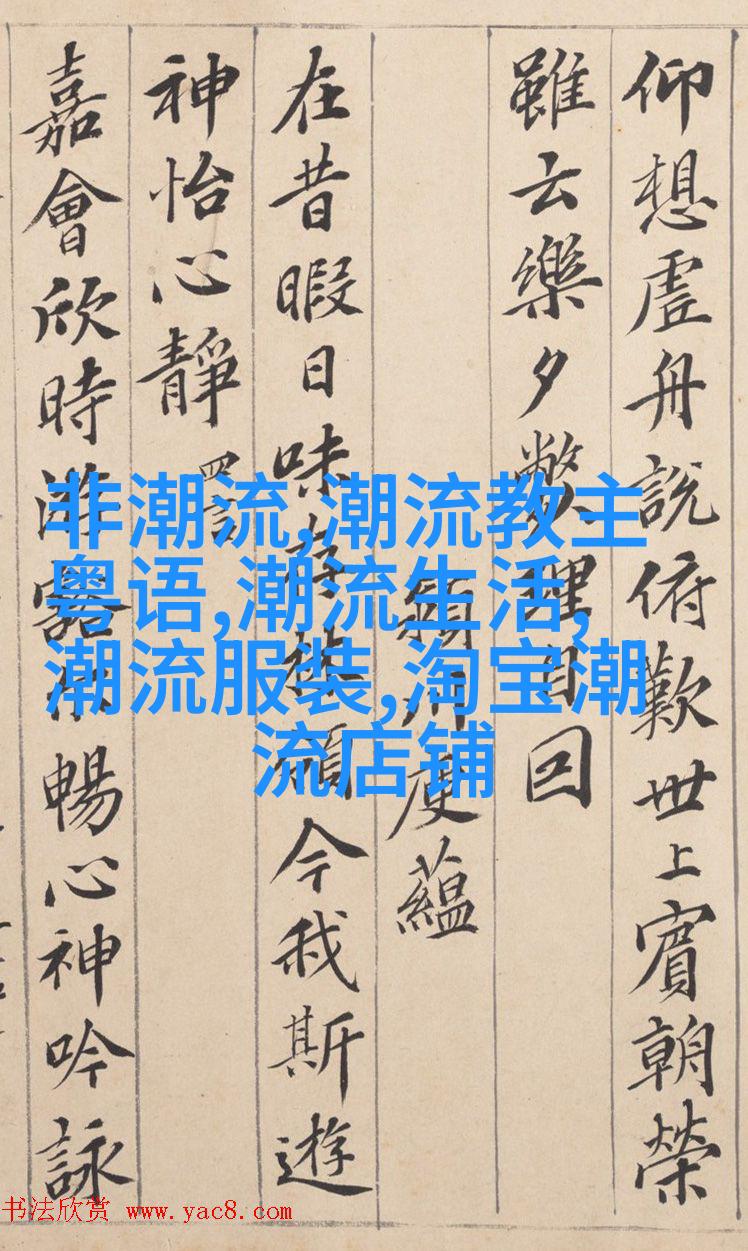 仰想虛舟說俯歎世上賓朝榮
雖云樂夕斃理自回
潁川庾蘊
在昔暇日味存林嶺今我斯遊
神怡心靜
嘉會欣時游豁尒暢心神吟詠
非潮流,潮流教主
粤语,潮流生活,
潮流服装,淘宝潮
流店铺
书法欣赏 www.yac8.com